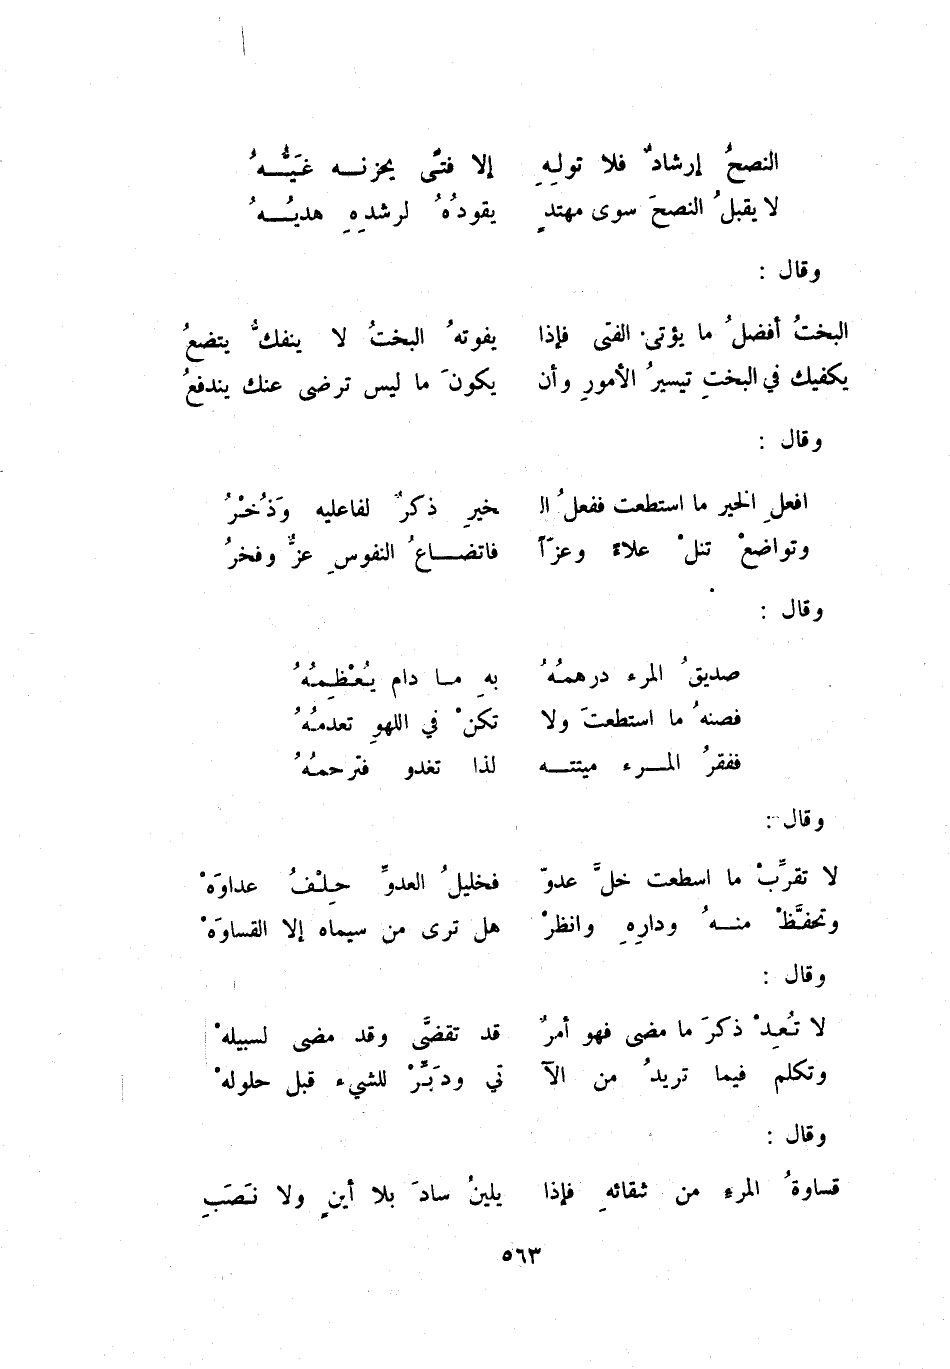 النصحُ إرشادٌ فلا تولِهِ إلا فتىً يحزنه غَيُّهُ
لا يقبلُ النصحَ سوى مهتدٍ يقودُهُ لرشدِهِ هديُهُ
وقال :
البختُ أفضلُ ما يؤتى الفتى فإذا يفوتهُ البختُ لا ينفكُّ يتضعُ
يكفيك في البختِ تيسيرُ الأمورِ وأن يكونَ ما ليس ترضى عنك يندفعُ
وقال :
افعلِ الخير ما استطعت ففعلُ الـ ـخيرِ ذكرٌ لفاعليه وَذُخْرُ
وتواضعْ تنلْ علاءً وعزّاً فاتضاعُ النفوسِ عزٌّ وفخرُ
وقال :
صديقُ المرء درهمُهُ بهِ ما دام يُعْظِمُهُ
فصنهُ ما استطعتَ ولا تكنْ في اللهوِ تعدمُهُ
ففقرُ المرء ميتته لذا تغدو فترحمُهُ
وقال :
لا تقرِّبْ ما اسطعت خلَّ عدوّ فخليلُ العدوِّ حِلْفُ عداوَهْ
وتحفَّظْ منهُ ودارِهِ وانظرْ هل ترى من سيماه إلا القساوَهْ
وقال :
لا تُعِدْ ذكرَ ما مضى فهو أمرٌ قد تقضَّى وقد مضى لسبيلهْ
وتكلم فيما تريدُ من الآ تي ودَبِّرْ للشيء قبل حلولهْ
وقال :
قساوةُ المرءِ من شقائهِ فإذا يلينُ سادَ بلا أينٍ ولا نَصَبِ
٥٦٣